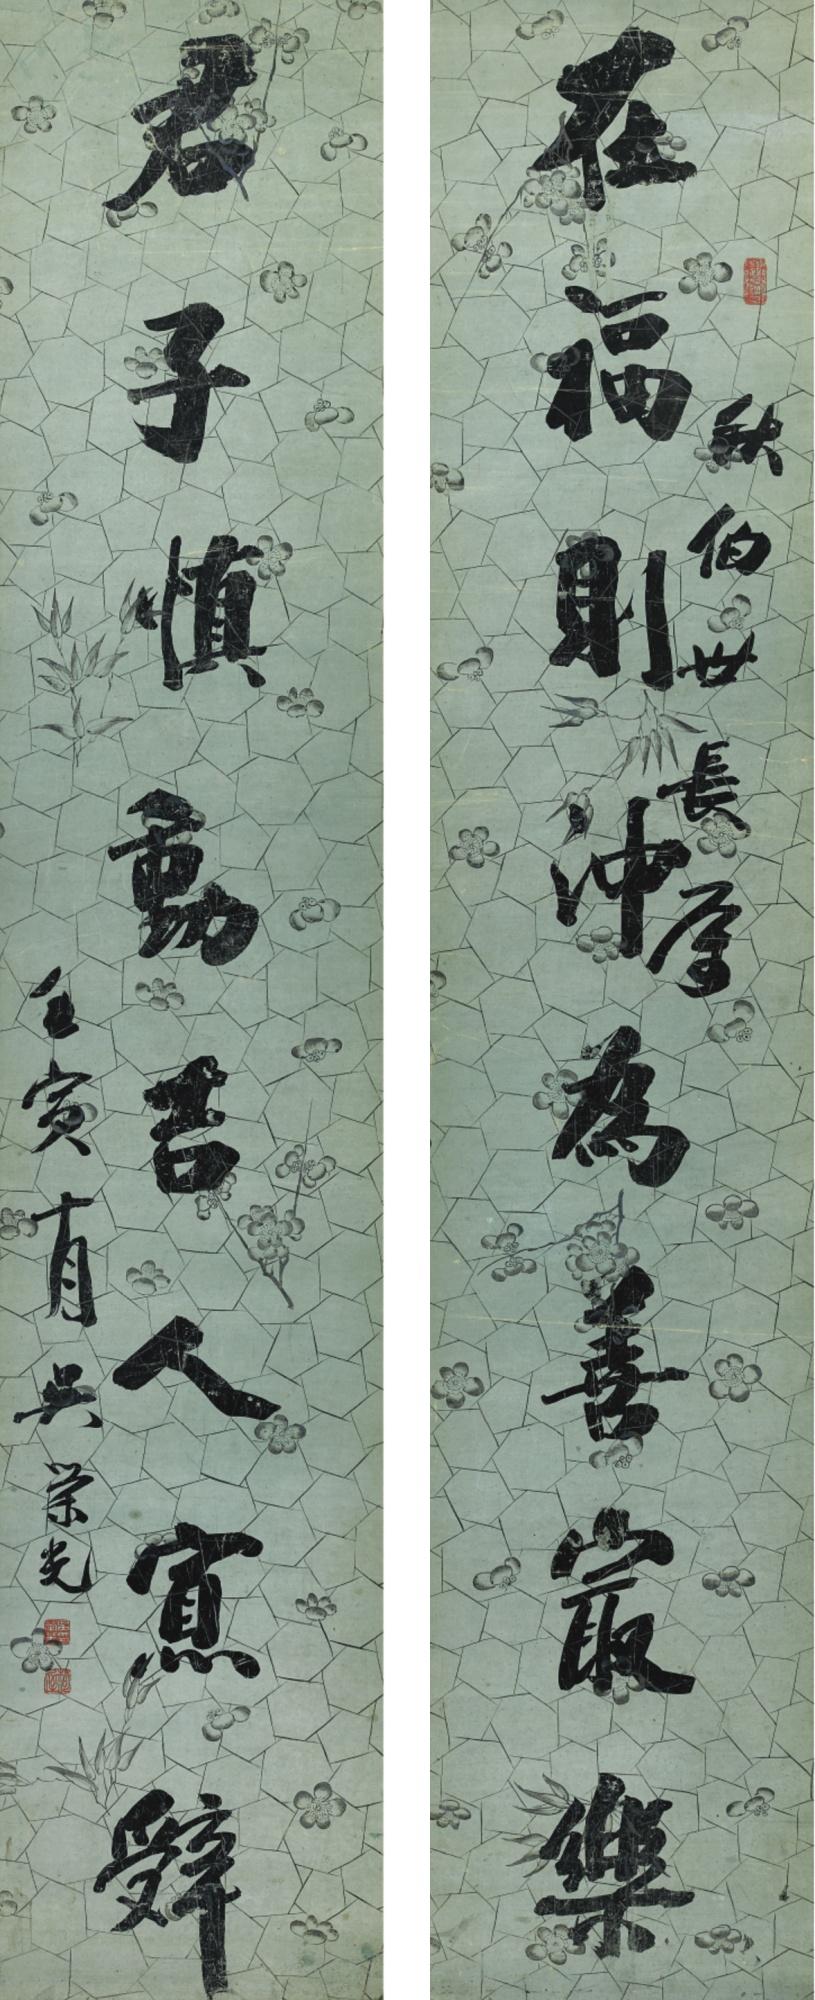 在福則冲為善最樂
秋伯世長屬
君子慎動吉人寡辭
壬寅有月吳榮光